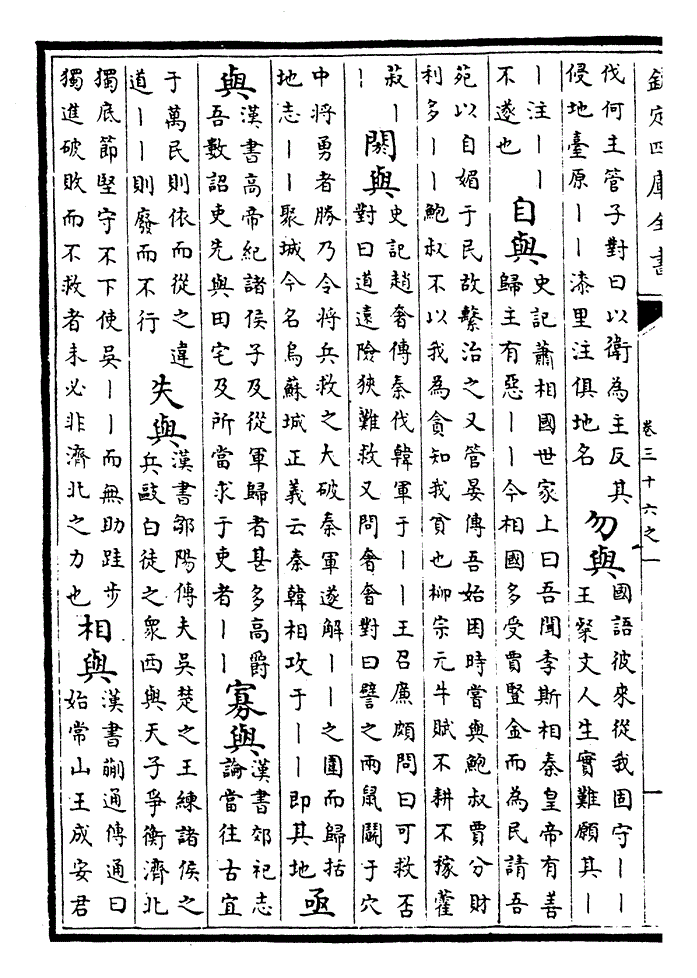 欽定四庫全書
卷三十六之一
一
伐何主管子對曰以衛為主反其
侵地臺原丨丨漆里注俱地名
勿與
國語彼來從我固守丨丨
王粲文人生實難願其丨
丨注丨丨
不遂也
自與
史記蕭相國世家上曰吾聞李斯相秦皇帝有善
歸主有惡丨丨今相國多受賈豎金而為民請吾
苑以自媚于民故繫治之又管晏傳吾始困時嘗與鮑叔賈分財
利多丨丨鮑叔不以我為貪知我貧也柳宗元牛賦不耕不稼藿
菽丨
丨
閼與
史記趙奢傳秦伐韓軍于丨丨王召廉頗問曰可救否
對曰道遠險狹難救又問奢奢對曰譬之兩鼠鬭于穴
中將勇者勝乃令將兵救之大破秦軍遂解丨丨之圍而歸括
地志丨丨聚城今名烏蘇城正義云秦韓相攻于丨丨即其地
亟
與
漢書高帝紀諸侯子及從軍歸者甚多高爵
吾數詔吏先與田宅及所當求于吏者丨丨
寡與
漢書郊祀志
論當往古宜
于萬民則依而從之違
道丨丨則廢而不行
失與
漢書鄒陽傳夫吳楚之王練諸侯之
兵敺白徒之衆西與天子爭衡濟北
獨底節堅守不下使吳丨丨而無助跬步
獨進破敗而不救者未必非濟北之力也
相與
漢書蒯通傳通曰
始常山王成安君